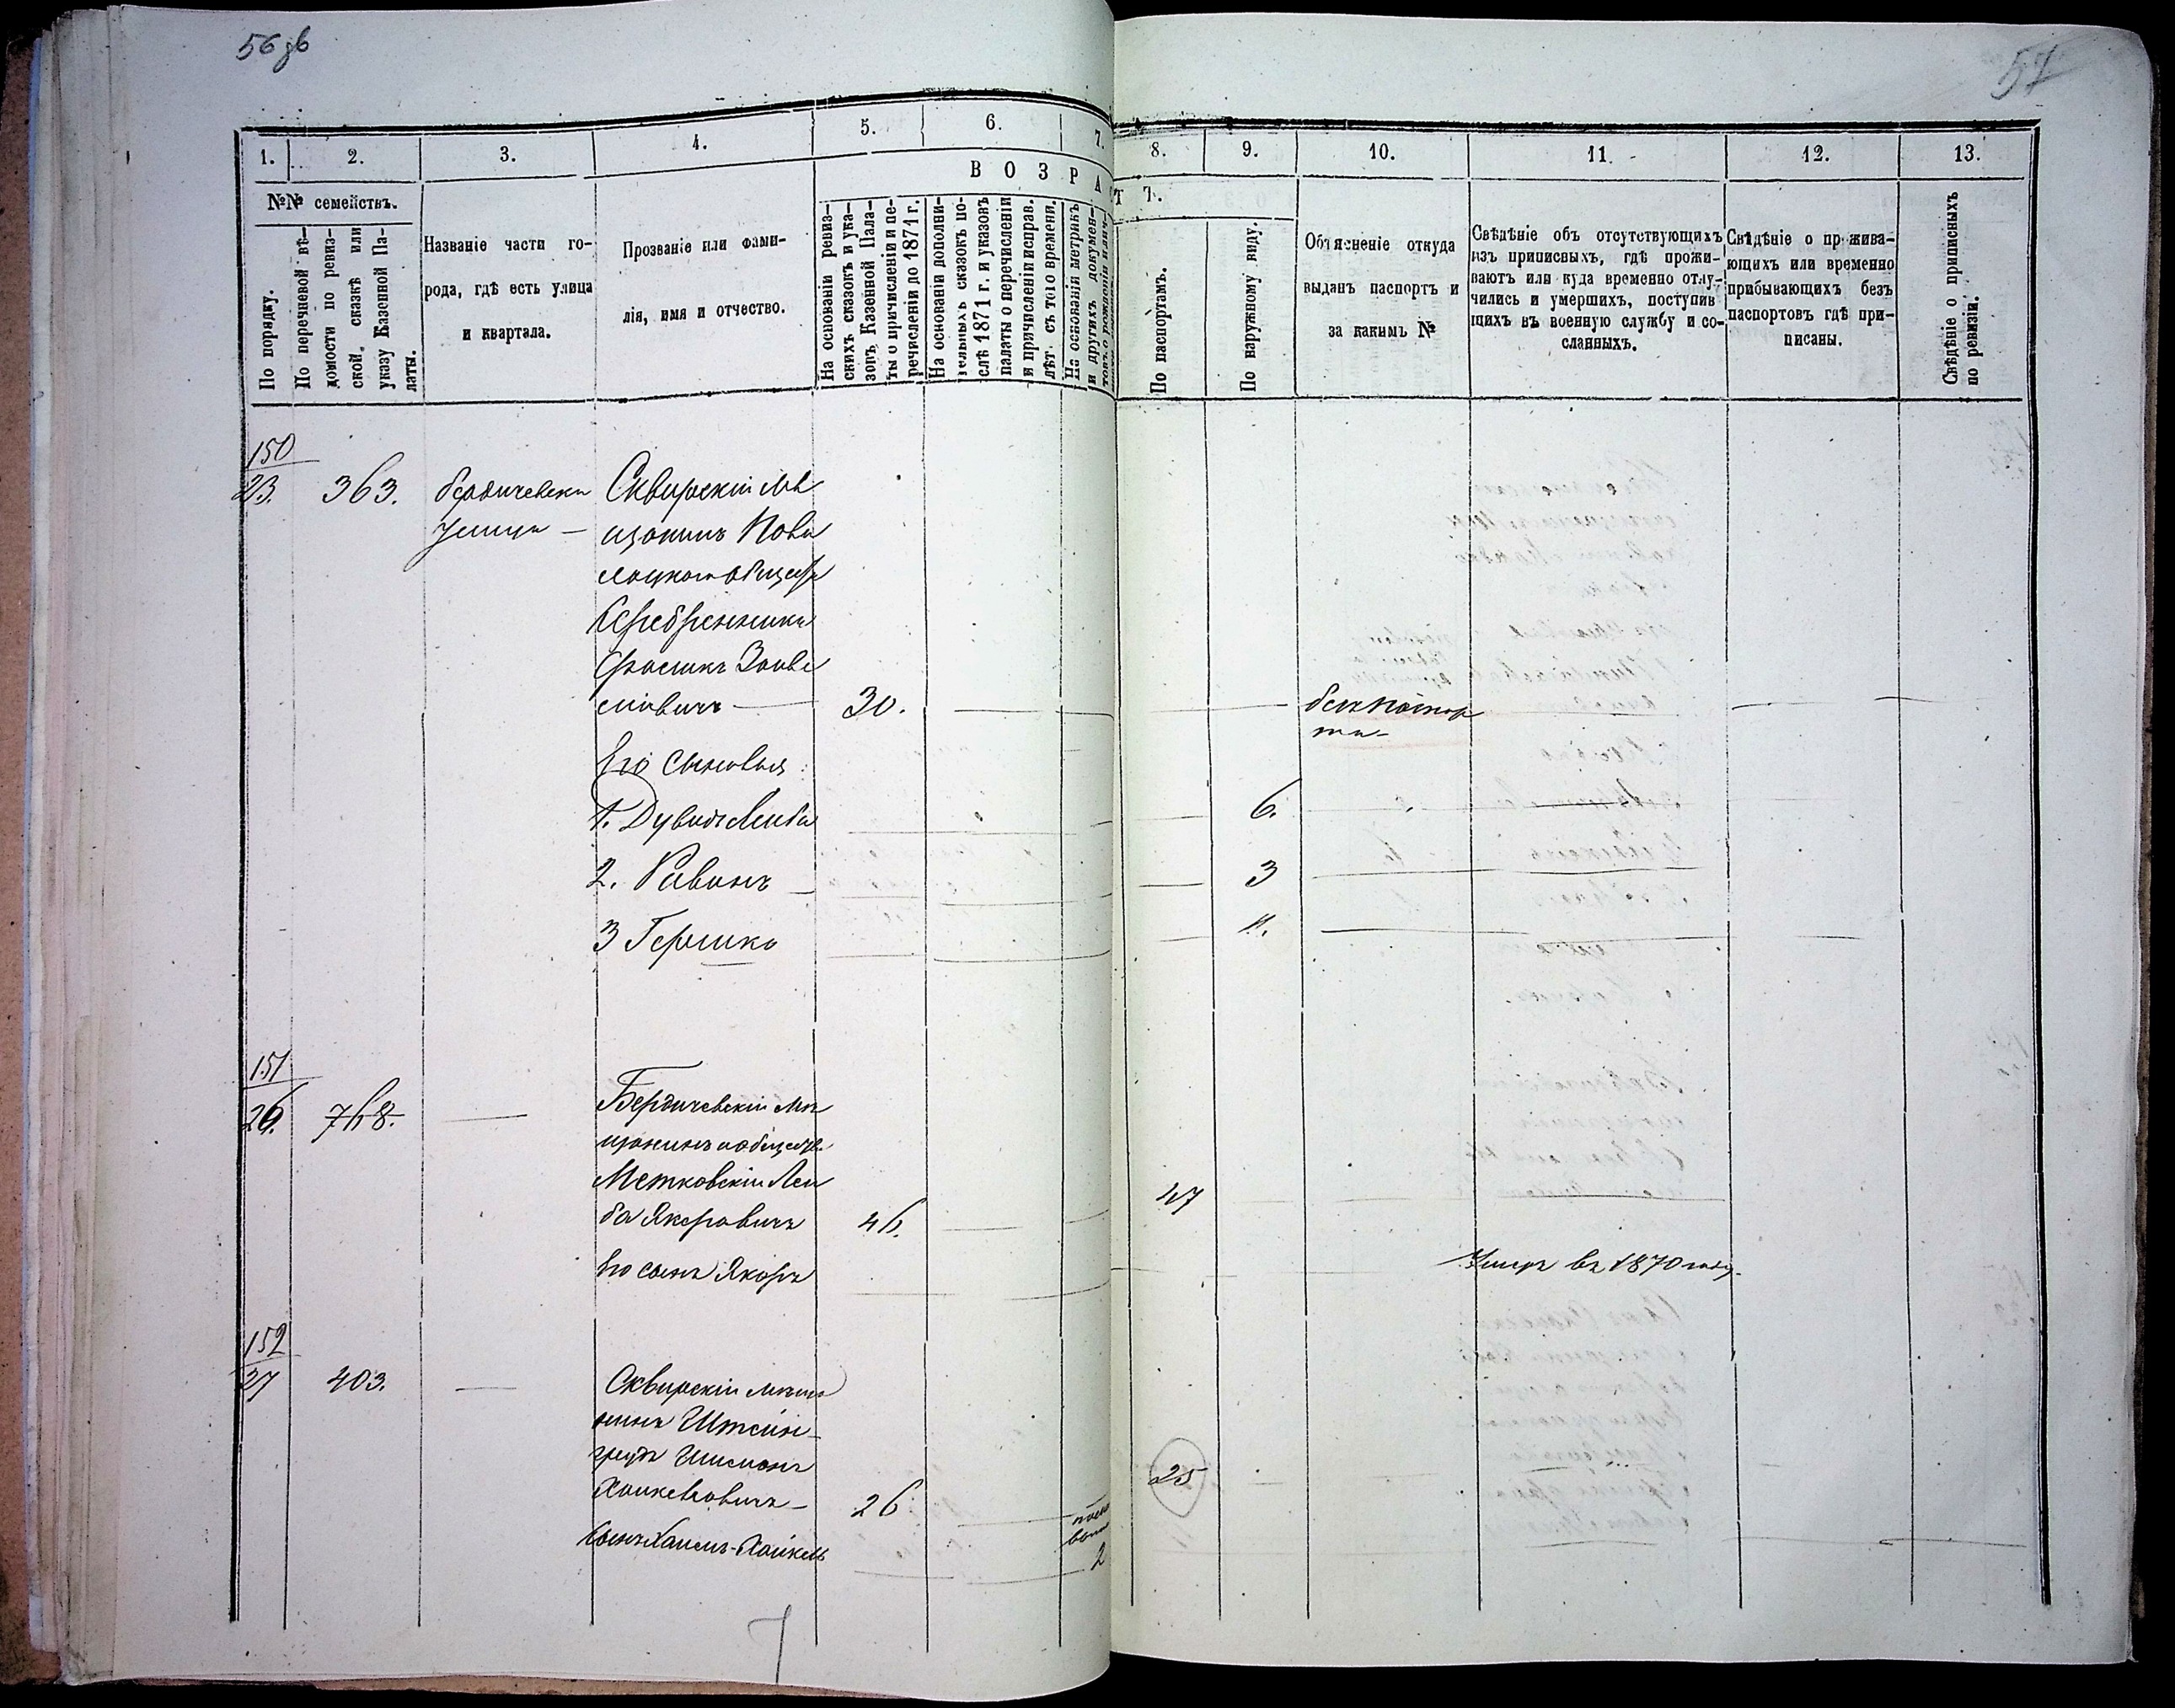 56 зв
57
1.
2.
3.
4.
5.
6.
7.
8.
9.
10.
11.
12.
13.
В О З Р А
С Т Ъ.
№№ семействъ.
По порядку.
По перечневой вѣ-
домости по ревиз-
ской, сказкѣ или
указу Казенной Па-
латы.
Названіе части го-
рода, гдѣ есть улица
и квартала.
Прозваніе или фами-
лія, имя и отчество.
На основаніи ревиз-
скихъ сказокъ и ука-
зовъ Казенной Пала-
ты о причисленіи и пе-
речисленіи до 1871 г.
На основаніи дополни-
тельныхъ сказокъ по-
слѣ 1871 г. и указовъ
палаты о перечисленіи
и причисленіи исправ.
лѣт. съ того времени.
На основаніи метрикъ
и другихъ докумен-
По паспортамъ.
По наружному виду.
Объясненіе откуда
выданъ паспортъ и
за какимъ №
Свѣдѣніе объ отсутствующихъ
изъ приписныхъ, гдѣ прожи-
ваютъ или куда временно отлу-
чились и умершихъ, поступив
щихъ въ военную службу и со-
сланныхъ.
Свѣдѣніе о прожива-
ющихъ или временно
прибывающихъ безъ
паспортовъ гдѣ при-
писаны.
Свѣдѣніе о приписныхъ
по ревизіи.
150
363.
Сквирскій мѣ
щанинъ
Серебренника
30.
Его сыновья:
1. Дувидъ Лейба
6.
2. Рувинъ
3
3 Гершко
151
26.
768.
Бердичевскій мѣ
щанинъ общества
Метковскій Лей
47
46.
Его сынъ
Умеръ въ 1870 году.
152
27
403.
Сквирскій мѣща
нинъ Штейн-
Шимонъ
25
26
2
Сынъ Хаимъ-Хайкель
7